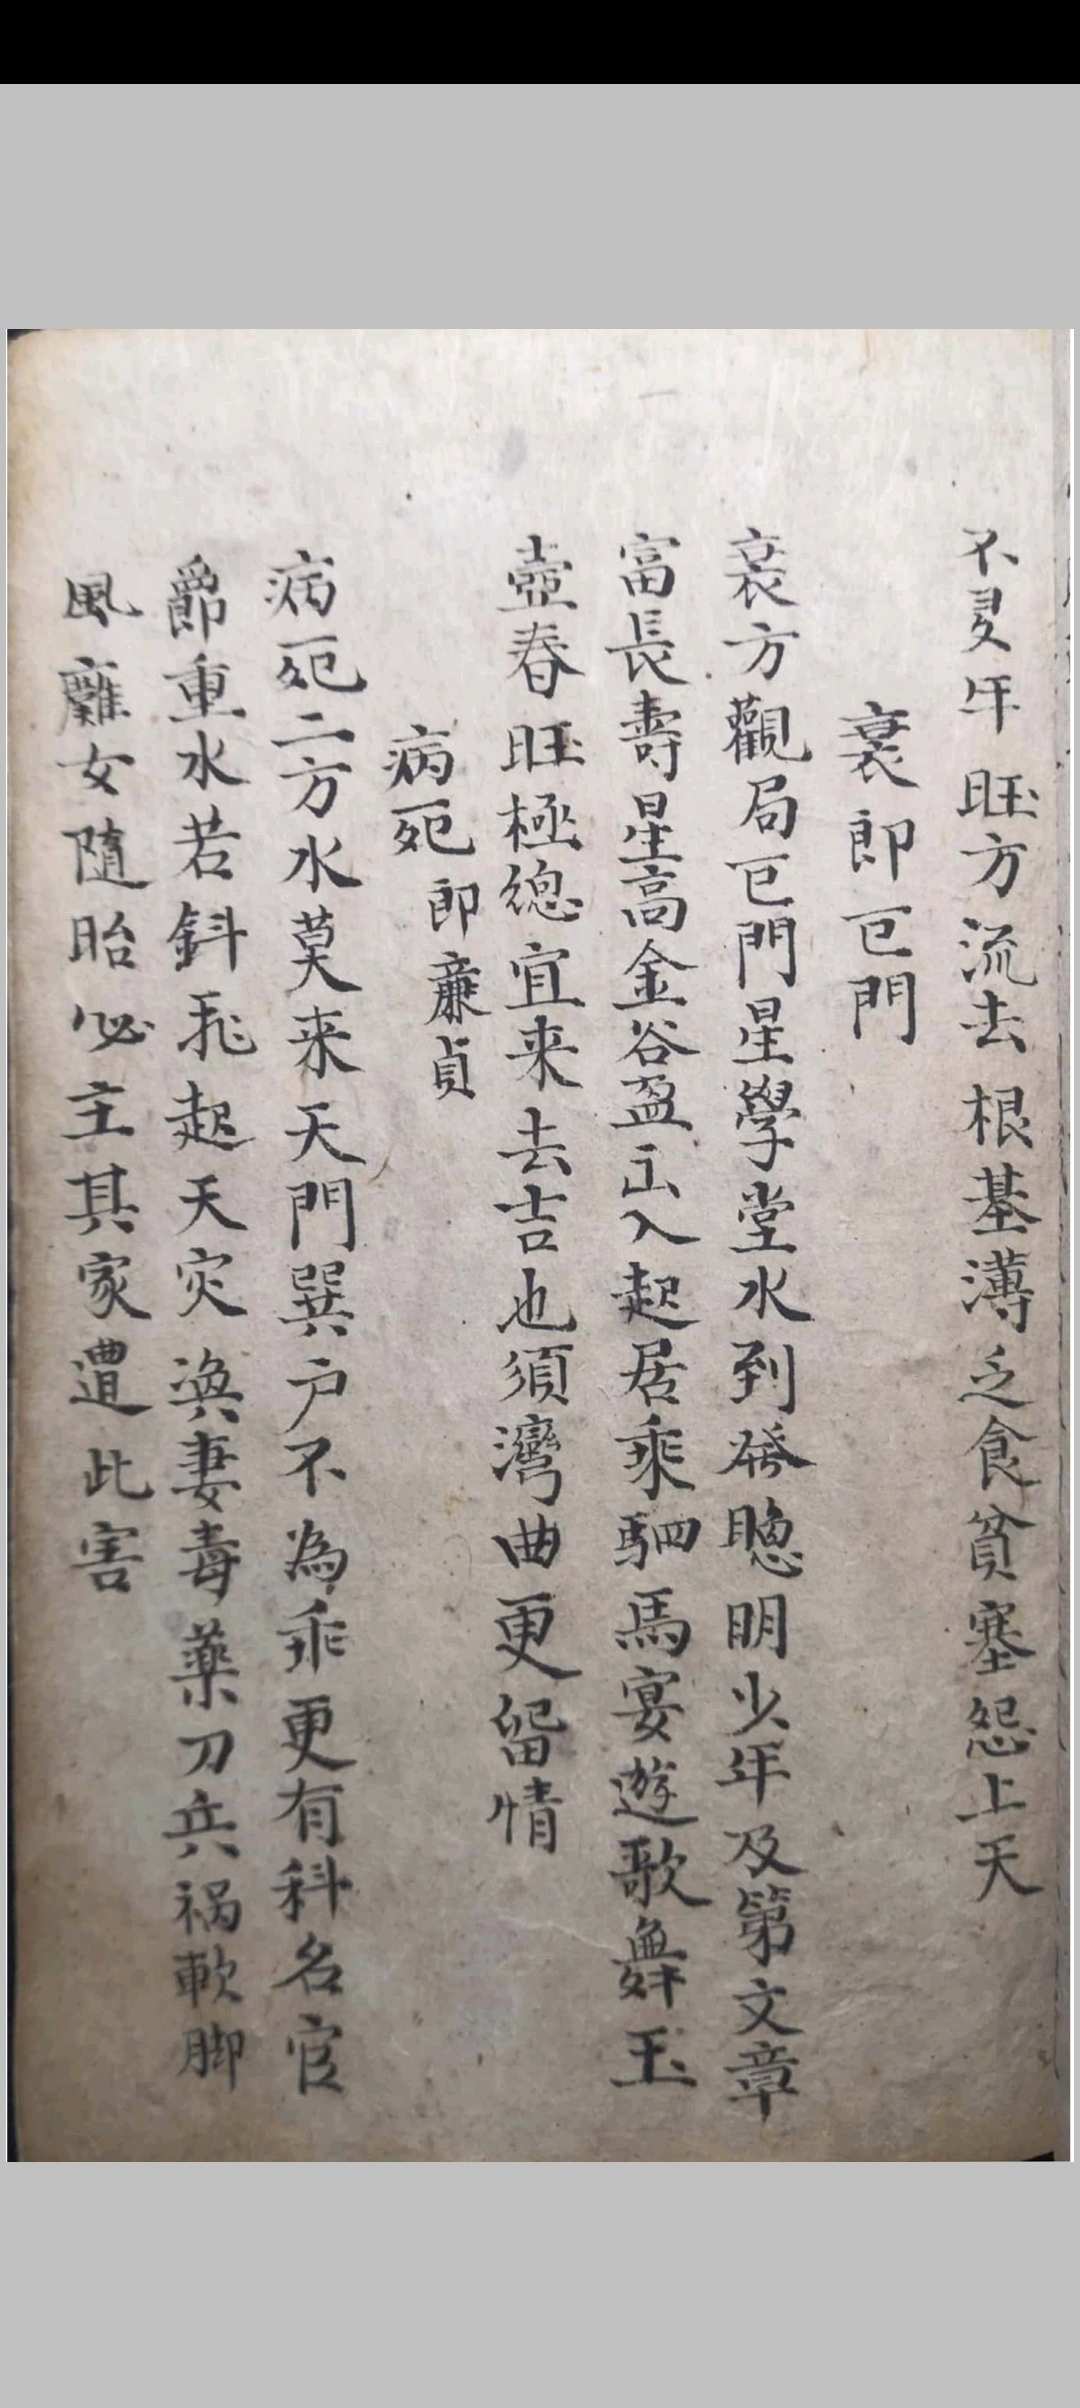 不足年旺方流去根基薄乏食貧塞怨上天
衰即巨門
衰方觀局巨門星學堂水到發聰明少年及第文章
富長壽星高金谷盈出入起居乘駟馬宴遊歌舞玉
壺春旺極總宜来去吉也須灣曲更留情
病死即廉貞
病死二方水莫来天門巽户不為乖更有科名官
爵重水若斜飛起天灾換妻毒藥刀兵禍軟脚
風癱女隨胎必主其家遭此害